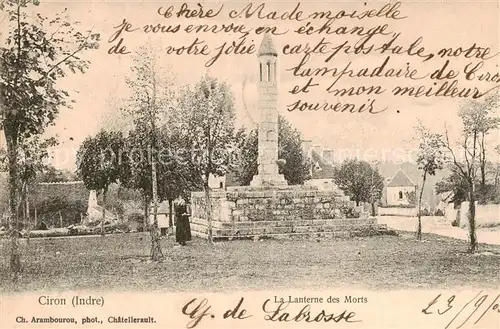 Chère Mademoiselle
je vous envoie, en échange,
de votre jolie carte postale, notre
lampadaire de Ciron
et mon meilleur
souvenir.
Ciron (Indre)
La Lanterne des Morts
Ch. Arambourou, phot., Châtellerault.
G. de Labrosse
23/9/0